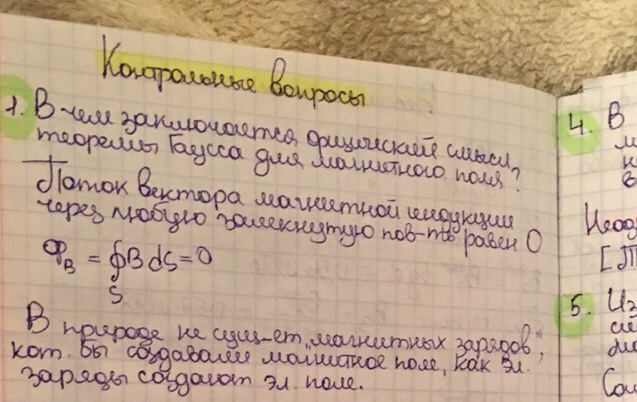 Контрольные вопросы
1. В чем заключается физический смысл
теоремы Гаусса для магнитного поля?
Поток вектора магнитной индукции
через любую замкнутую пов-ть равен 0
Ф_B = ∮B dS = 0
S
В природе не сущ-ет „магнитных зарядов",
кот. бы создавали магнитное поле, как эл.
заряды создают эл. поле.
4. В
5. Из